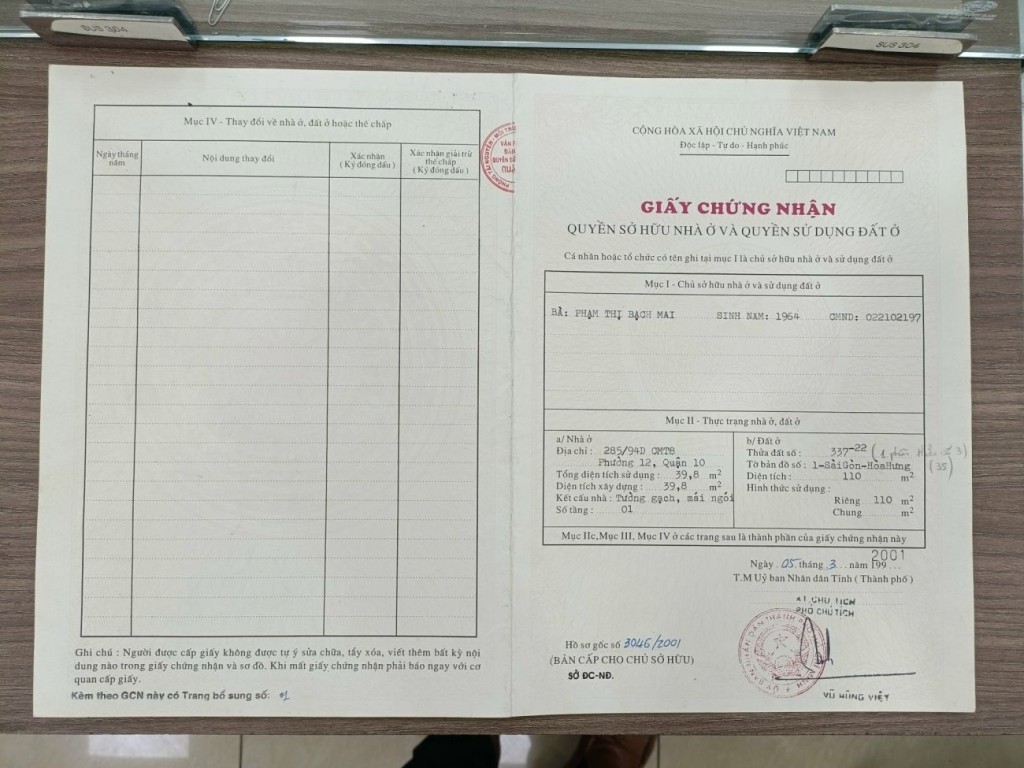 SUS 304
SUS 304
Mục IV - Thay đổi về nhà ở, đất ở hoặc thế chấp
Ngày tháng năm
Nội dung thay đổi
Xác nhận
(Ký đóng dấu)
Xác nhận giải trừ
thế chấp
(Ký đóng dấu)
Ghi chú : Người được cấp giấy không được tự ý sửa chữa, tẩy xóa, viết thêm bất kỳ nội
dung nào trong giấy chứng nhận và sơ đồ. Khi mất giấy chứng nhận phải báo ngay với cơ
quan cấp giấy.
Kèm theo GCN này có Trang bổ sung số: 01
CỘNG HÒA XÃ HỘI CHỦ NGHĨA VIỆT NAM
Độc lập - Tự do - Hạnh phúc
GIẤY CHỨNG NHẬN
QUYỀN SỞ HỮU NHÀ Ở VÀ QUYỀN SỬ DỤNG ĐẤT Ở
Cá nhân hoặc tổ chức có tên ghi tại mục I là chủ sở hữu nhà ở và sử dụng đất ở
Mục I - Chủ sở hữu nhà ở và sử dụng đất ở
BÀ: PHẠM THỊ BẠCH MAI SINH NĂM: 1964 CMND: 022102197
Mục II - Thực trạng nhà ở, đất ở
a/ Nhà ở
Địa chỉ : 285/94D CMT8
Phường 12, Quận 10
Tổng diện tích sử dụng : 39,8 m²
Diện tích xây dựng : 39,8 m²
Kết cấu nhà : Tường gạch, mái ngói
Số tầng : 01
b/ Đất ở
Thửa đất số : 337-22 (1 phần thửa số 3)
Tờ bản đồ số : 1-SàiGòn-HòaHưng (35)
Diện tích : 110 m²
Hình thức sử dụng :
Riêng 110 m²
Chung m²
Mục IIc, Mục III, Mục IV ở các trang sau là thành phần của giấy chứng nhận này
2001
Ngày 05 tháng 3 năm 199
T.M Uỷ ban Nhân dân Tỉnh ( Thành phố )
KT CHỦ TỊCH
PHÓ CHỦ TỊCH
Hồ sơ gốc số 3046/2001
(BẢN CẤP CHO CHỦ SỞ HỮU)
SỞ ĐC-NĐ.
VŨ HÙNG VIỆT